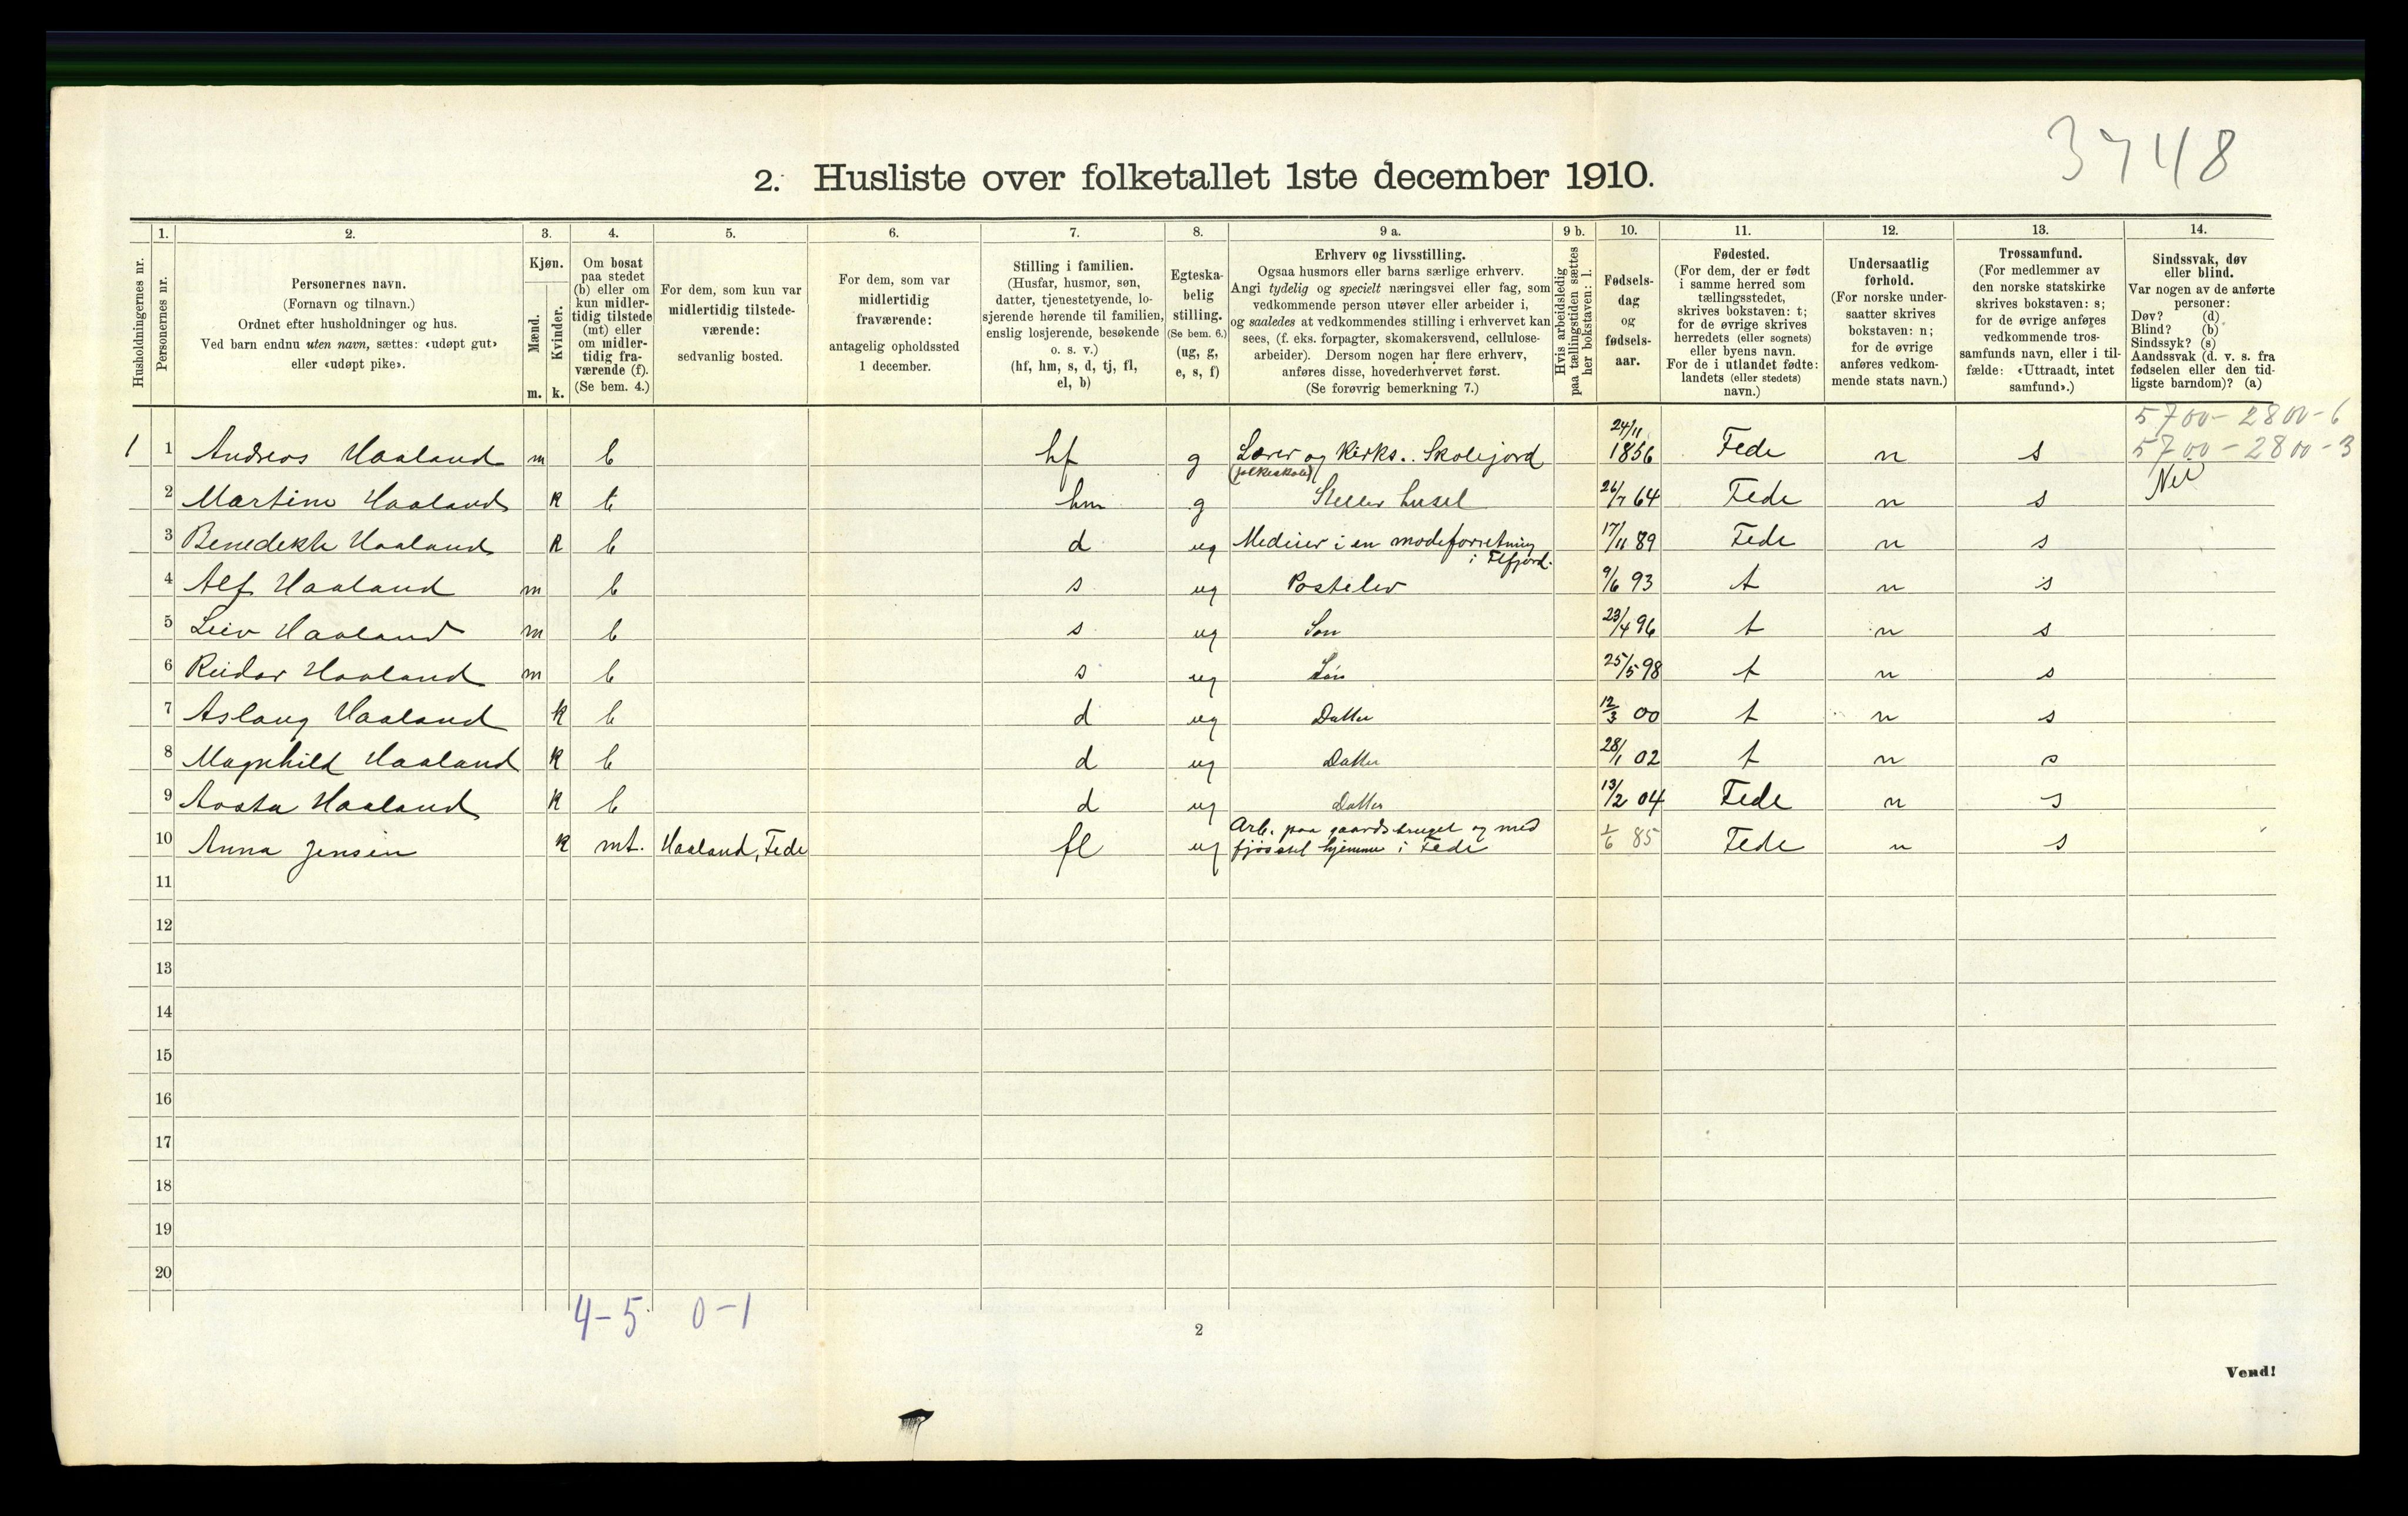 3748
2. Husliste over folketallet 1ste december 1910.
Husholdningernes nr.
1.
Personernes nr.
2.
Personernes navn.
(Fornavn og tilnavn.)
Ordnet efter husholdninger og hus.
Ved barn endnu uten navn, sættes: «udøpt gut»
eller «udøpt pike».
3.
Kjøn.
Mænd.
Kvinder.
m. k.
4.
Om bosat
paa stedet
(b) eller om
kun midler-
tidig tilstede
(mt) eller
om midler-
tidig fra-
værende (f).
(Se bem. 4.)
5.
For dem, som kun var
midlertidig tilstede-
værende:
sedvanlig bosted.
6.
For dem, som var
midlertidig
fraværende:
antagelig opholdssted
1 december.
7.
Stilling i familien.
(Husfar, husmor, søn,
datter, tjenestetyende, lo-
sjerende hørende til familien,
enslig losjerende, besøkende
o. s. v.)
(hf, hm, s, d, tj, fl,
el, b)
8.
Egteska-
belig
stilling.
(Se bem. 6.)
(ug, g,
e, s, f)
9 a.
Erhverv og livsstilling.
Ogsaa husmors eller barns særlige erhverv.
Angi tydelig og specielt næringsvei eller fag, som
vedkommende person utøver eller arbeider i,
og saaledes at vedkommendes stilling i erhvervet kan
sees, (f. eks. forpagter, skomakersvend, cellulose-
arbeider). Dersom nogen har flere erhverv,
anføres disse, hovederhvervet først.
(Se forøvrig bemerkning 7.)
9 b.
Hvis arbeidsledig
paa tællingstiden sættes
her bokstaven: l.
10.
Fødsels-
dag
og
fødsels-
aar.
11.
Fødested.
(For dem, der er født
i samme herred som
tællingsstedet,
skrives bokstaven: t;
for de øvrige skrives
herredets (eller sognets)
eller byens navn.
For de i utlandet fødte:
landets (eller stedets)
navn.)
12.
Undersaatlig
forhold.
(For norske under-
saatter skrives
bokstaven: n;
for de øvrige
anføres vedkom-
mende stats navn.)
13.
Trossamfund.
(For medlemmer av
den norske statskirke
skrives bokstaven: s;
for de øvrige anføres
vedkommende tros-
samfunds navn, eller i til-
fælde: «Uttraadt, intet
samfund».)
14.
Sindssvak, døv
eller blind.
Var nogen av de anførte
personer:
Døv? (d)
Blind? (b)
Sindssyk? (s)
Aandssvak (d. v. s. fra
fødselen eller den tid-
ligste barndom)? (a)
5700-2800-6
1 1 Andreas Haaland m b hf g Lærer og Kirks.. Skolejord 24/11 1856 Fede n s 5700-2800-3
(folkeskole)
2 Martine Haaland k b hm g Steller huset 26/7 64 Fede n s Nei
3 Benedikte Haaland k b d ug Medeier i en modeforretning 17/11 89 Fede n s
i Flfjord.
4 Alf Haaland m b s ug Postelev 9/6 93 t n s
5 Leiv Haaland m b s ug Søn 23/4 96 t n s
6 Reidar Haaland m b s ug Søn 25/5 98 t n s
7 Aslaug Haaland k b d ug Datter 12/3 00 t n s
8 Magnhild Haaland k b d ug Datter 28/1 02 t n s
9 Aasta Haaland k b d ug Datter 13/2 04 Fede n s
10 Anna Jensen k mt. Haaland, Fede fl ug Arb. paa gaardsbruget og med 1/6 85 Fede n s
fjøsstel hjemme i Fede
11
12
13
14
15
16
17
18
19
20
4-5 0-1
2
Vend!